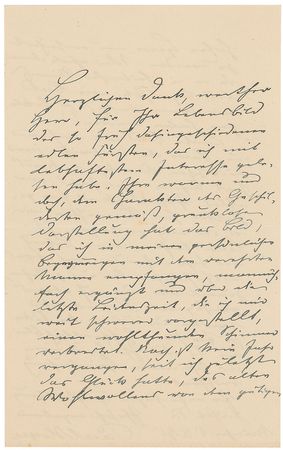 Herzlichen Dank, werther
Herr, für Ihr Lebensbild
des so früh dahingeschiedenen
edlen Fürsten, das ich mit
lebhaftestem Interesse gele-
sen habe. Ihre warme und
doch, dem Charakter des Geschil-
derten gemäß, prunklose
Darstellung hat das Bild,
das ich in meinen persönlichen
Begegnungen mit dem verehrten
Manne empfangen, mannig-
fach ergänzt und über die
letzte Leidenszeit, die ich mir
weit schwerer vorgestellt,
einen wohlthuenden Schimmer
verbreitet. Noch ist kein Jahr
vergangen, seit ich zuletzt
das Glück hatte, des alten
Wohlwollens von dem gütigen